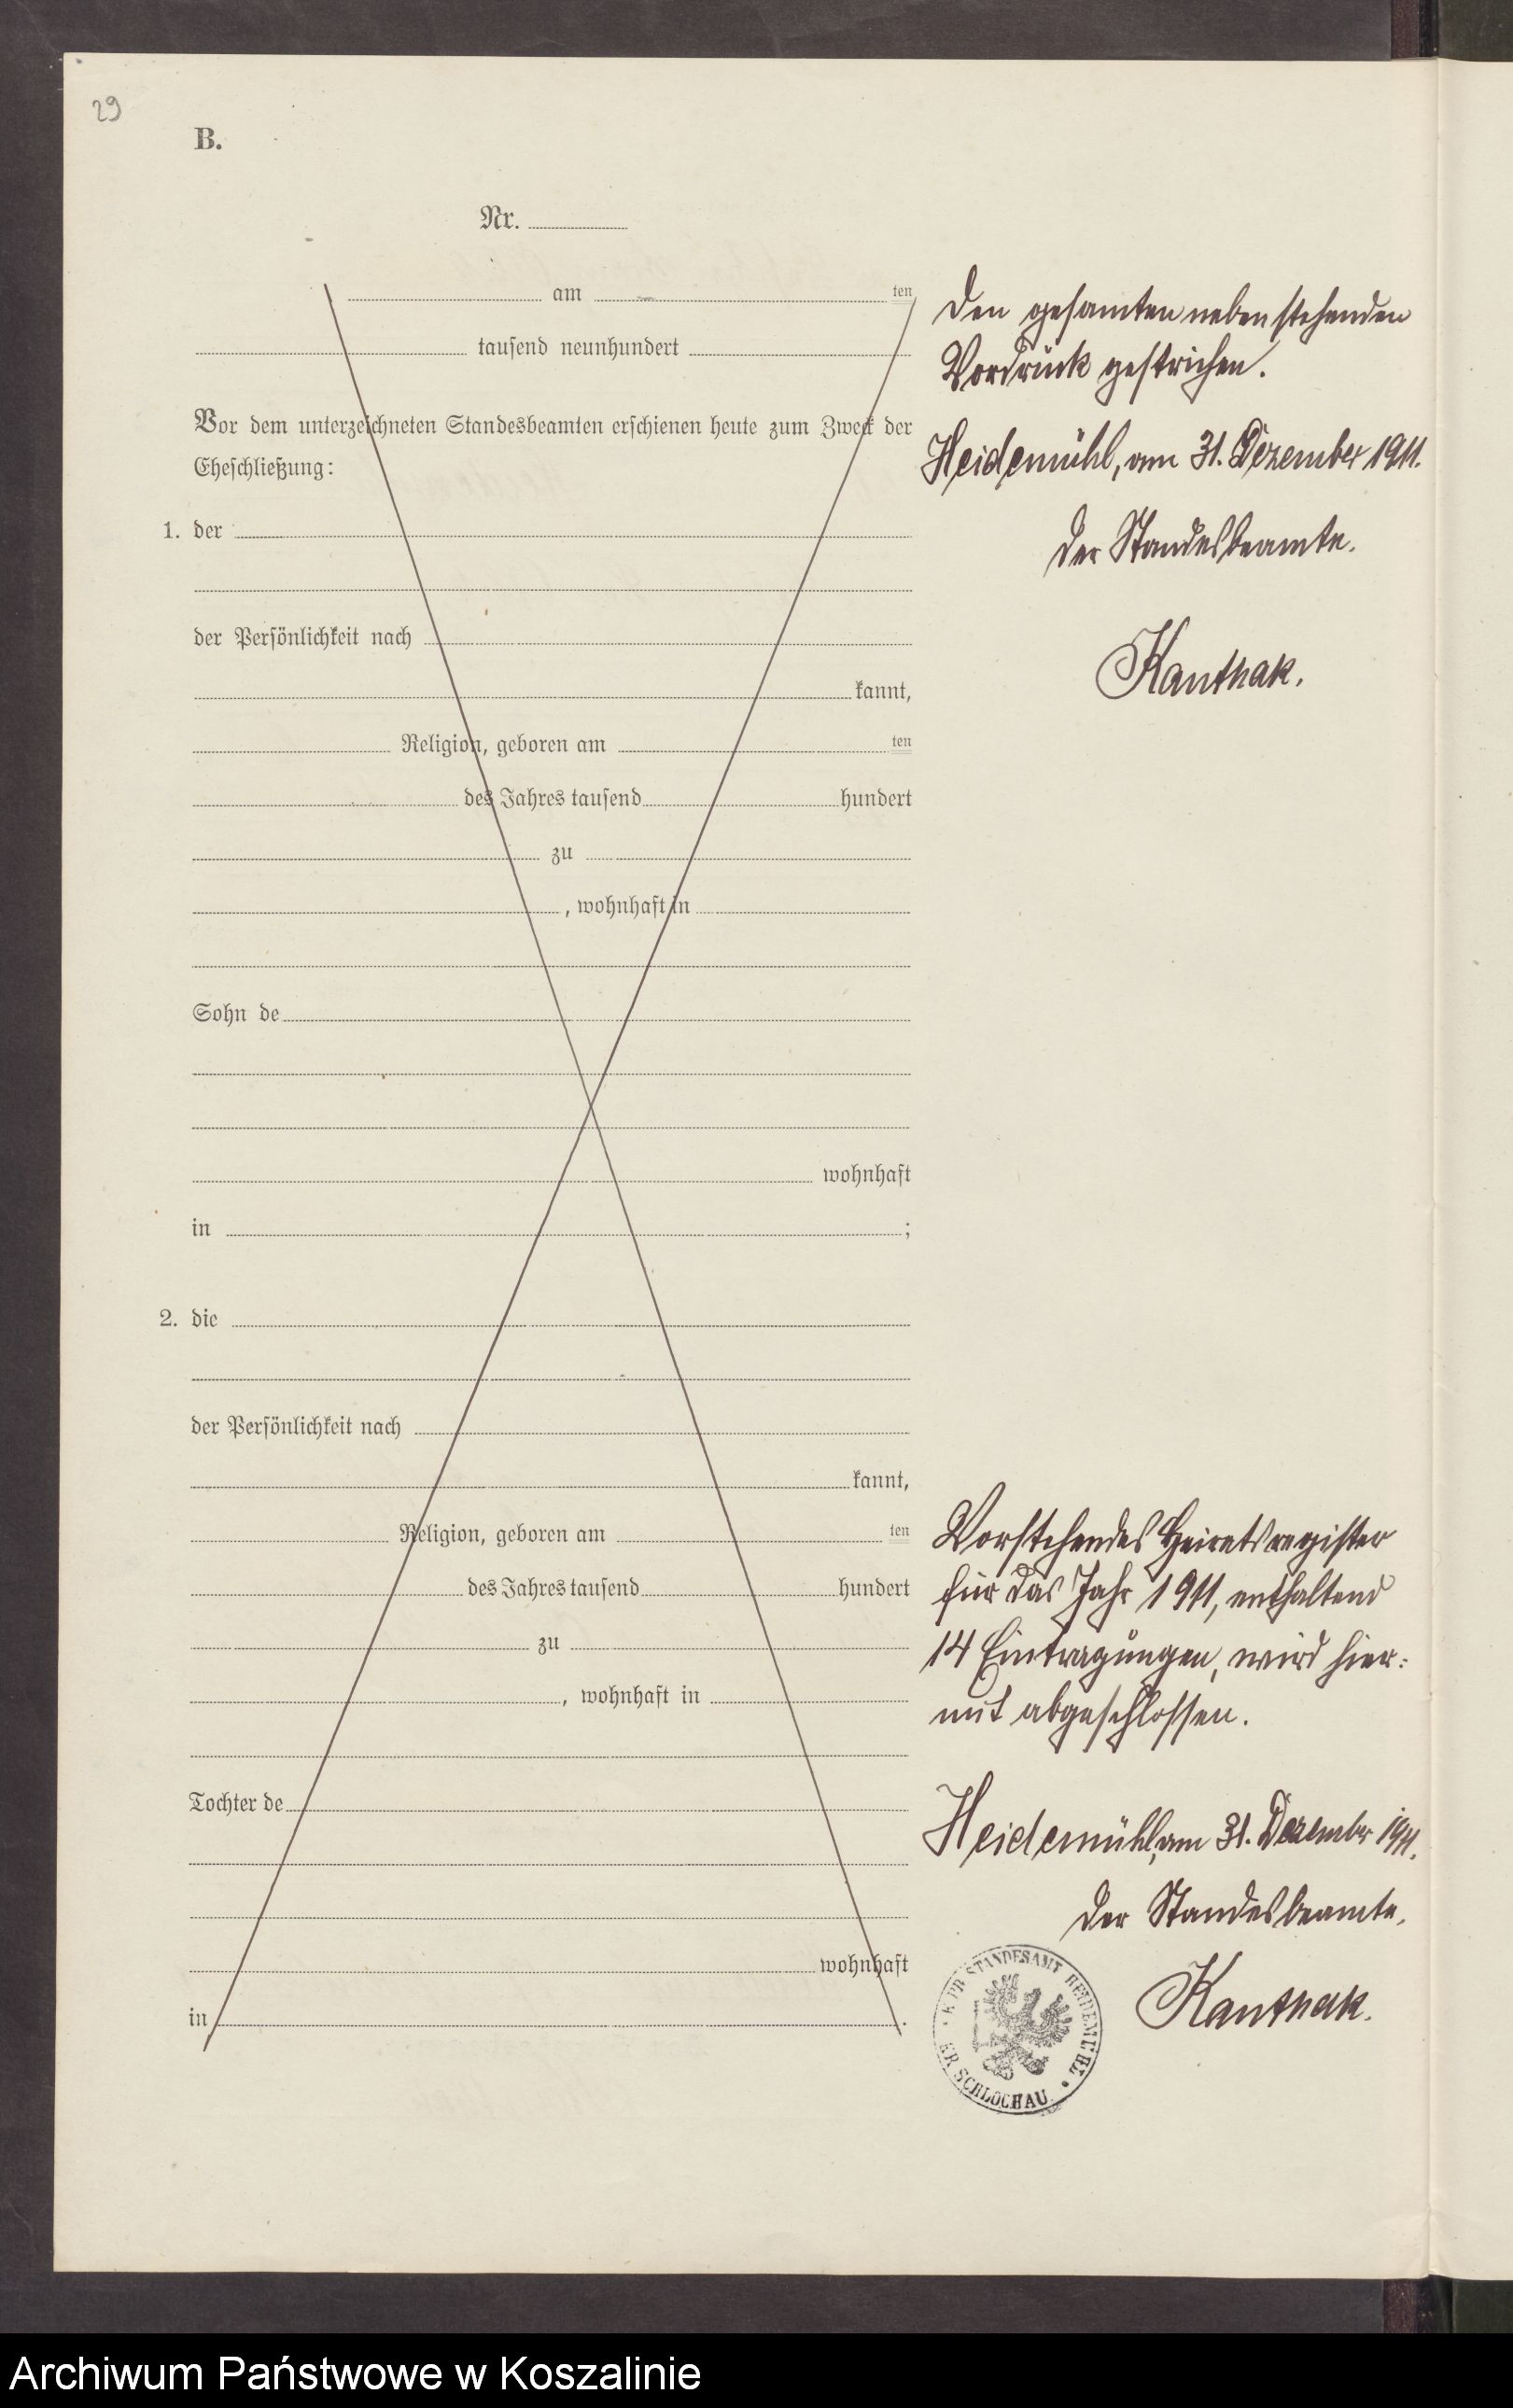 29
B.
Nr.
am ten
tausend neunhundert
Vor dem unterzeichneten Standesbeamten erschienen heute zum Zweck der
Eheschließung:
1. der
der Persönlichkeit nach
kannt,
Religion, geboren am ten
des Jahres tausend hundert
zu
, wohnhaft in
Sohn de
wohnhaft
in ;
2. die
der Persönlichkeit nach
kannt,
Religion, geboren am ten
des Jahres tausend hundert
zu
, wohnhaft in
Tochter de
wohnhaft
in .
Den gesamten nebenstehenden
Vordruck gestrichen.
Heidemühl, am 31. Dezember 1911.
Der Standesbeamte.
Kanthak.
Vorstehendes Heiratsregister
für das Jahr 1911, enthaltend
14 Eintragungen, wird hier=
mit abgeschlossen.
Heidemühl, am 31. Dezember 1911.
Der Standesbeamte.
Kanthak.
K. PR. STANDESAMT HEIDEMÜHL
KR. SCHLOCHAU.
Archiwum Państwowe w Koszalinie